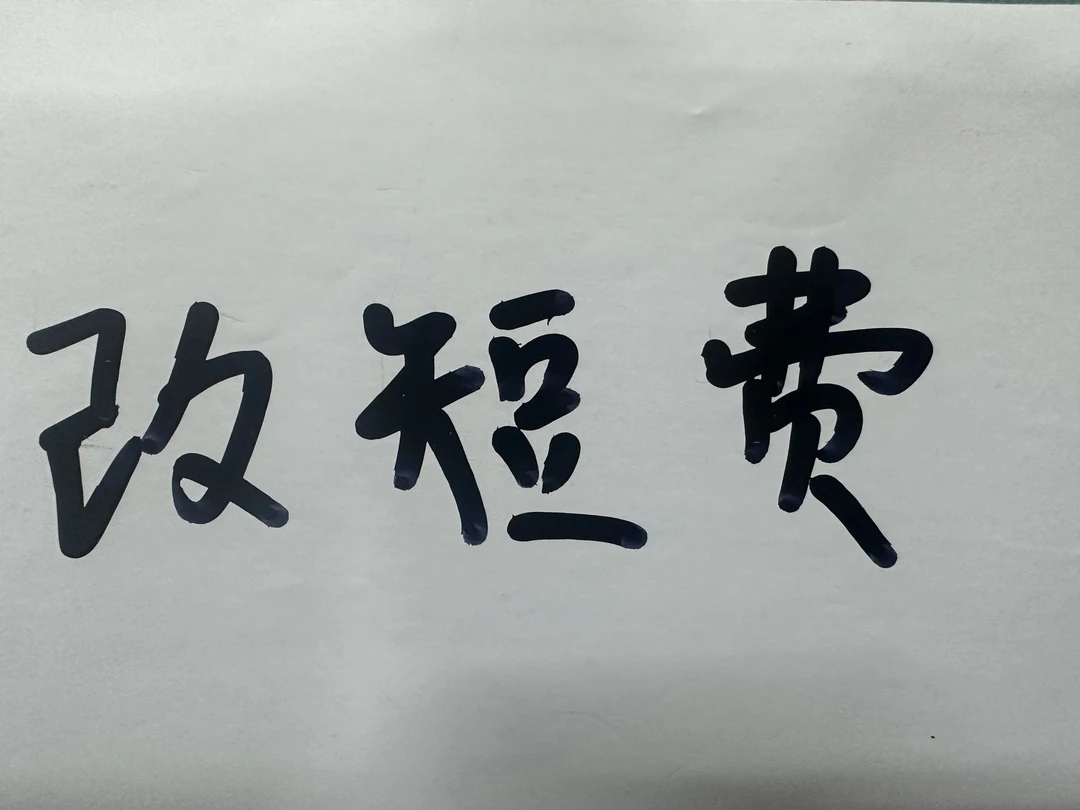 改短费